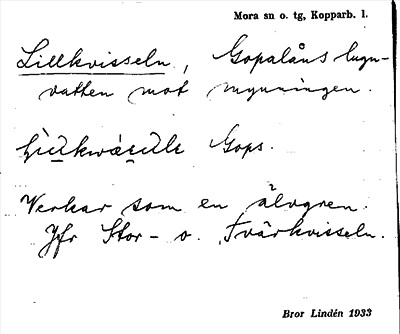 Mora sn o. tg, Kopparb. l.
Lillkvisseln, Gopalåns lugn-
vatten mot mynningen.
Gops.
Verkar som en älvgren.
Jfr Stor- o. Tvärkvisseln.
Bror Lindén 1933